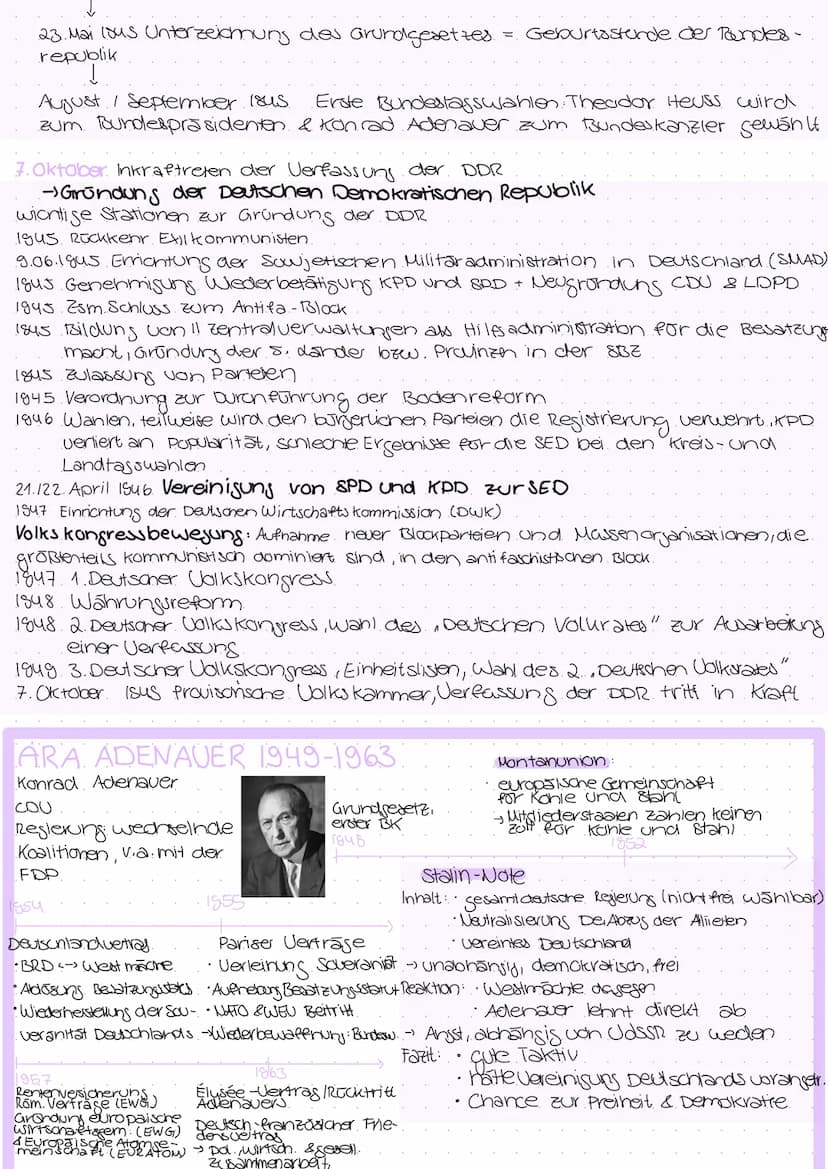 23. Mai 1949 Unterzeichnung des Grundgesetzes = Geburtsstunde der Bundes-
republik
August / September 1949 Erste Bundestagswahlen: Theodor Heuss wird
zum Bundespräsidenten & Konrad Adenauer zum Bundeskanzler gewählt
7. Oktober Inkraftreten der Verfassung der DDR
→ Gründung der Deutschen Demokratischen Republik
wichtige Stationen zur Gründung der DDR
1945 Rückkehr Exilkommunisten
9.06.1945 Errichtung der Sowjetischen Militäradministration in Deutschland (SMAD)
1945 Genehmigung Wiederbetätigung KPD und SPD + Neugründung CDU & LDPD
1945 Zsm.Schluss zum Antifa-Block
1945 Bildung von 11 Zentralverwaltungen als Hilfsadministration für die Besatzung
macht, Gründung der 5. Länder bzw. Provinzen in der SBZ
1945 Zulassung von Parteien
1945 Verordnung zur Durchführung der Bodenreform
1946 Wahlen, teilweise wird den bürgerlichen Parteien die Registrierung verwehrt, KPD
verliert an Popularität, schlechte Ergebnisse für die SED bei den Kreis- und
Landtagswahlen
21./22. April 1946 Vereinigung von SPD und KPD zur SED
1947 Einrichtung der Deutschen Wirtschaftskommission (DWK)
Volkskongressbewegung: Aufnahme neuer Blockparteien und Massenorganisationen, die
größtenteils kommunistisch dominiert sind, in den antifaschistischen Block
1947 1. Deutscher Volkskongress
1948 Währungsreform
1948 2. Deutscher Volkskongress, Wahl des „Deutschen Volkrates" zur Ausarbeitung
einer Verfassung
1949 3. Deutscher Volkskongress, Einheitslisten, Wahl des 2. „Deutschen Volksrates"
7. Oktober 1949 Provisorische Volkskammer, Verfassung der DDR tritt in Kraft
ÄRA ADENAUER 1949-1963
Konrad Adenauer
CDU
Regierung: wechselnde
Koalitionen, v.a. mit der
FDP
Grundgesetz,
erster BK
1949
Montanunion:
· europäische Gemeinschaft
für Kohle und Stahl
→ Mitgliederstaaten zahlen keinen
Zoll für Kohle und Stahl
1952
Stalin-Note
Inhalt: · gesamtdeutsche Regierung (nicht frei wählbar)
· Neutralisierung De, Abzug der Alliierten
· vereintes Deutschland
→ unabhängig, demokratisch, frei
Reaktion: · Westmächte dagegen
· Adenauer lehnt direkt ab
→ Angst, abhängig von UdSSR zu werden
Fazit: · gute Taktik
· hätte Vereinigung Deutschlands vorangetr.
· Chance zur Freiheit & Demokratie
1954
Deutschlandvertrag
· BRD <-> Westmächte
· Ablösung Besatzungsstatus
· Wiederherstellung der Sou-
veränität Deutschlands
1955
Pariser Verträge
· Verleihung Souveränität
· Aufhebung Besatzungsstatut
· NATO & WEU Beitritt
→ Wiederbewaffnung: Bundesw.
1957
Rentenversicherung
Röm. Verträge (EWG)
Gründung europäische
Wirtschaftsgem. (EWG)
& Europäische Atomge-
meinschaft (EURATOM)
1963
Élysée-Vertrag / Rücktritt
Adenauers
Deutsch-französischer Frie-
densvertrag
→ pol., wirtsch. & gesell.
Zusammenarbeit,